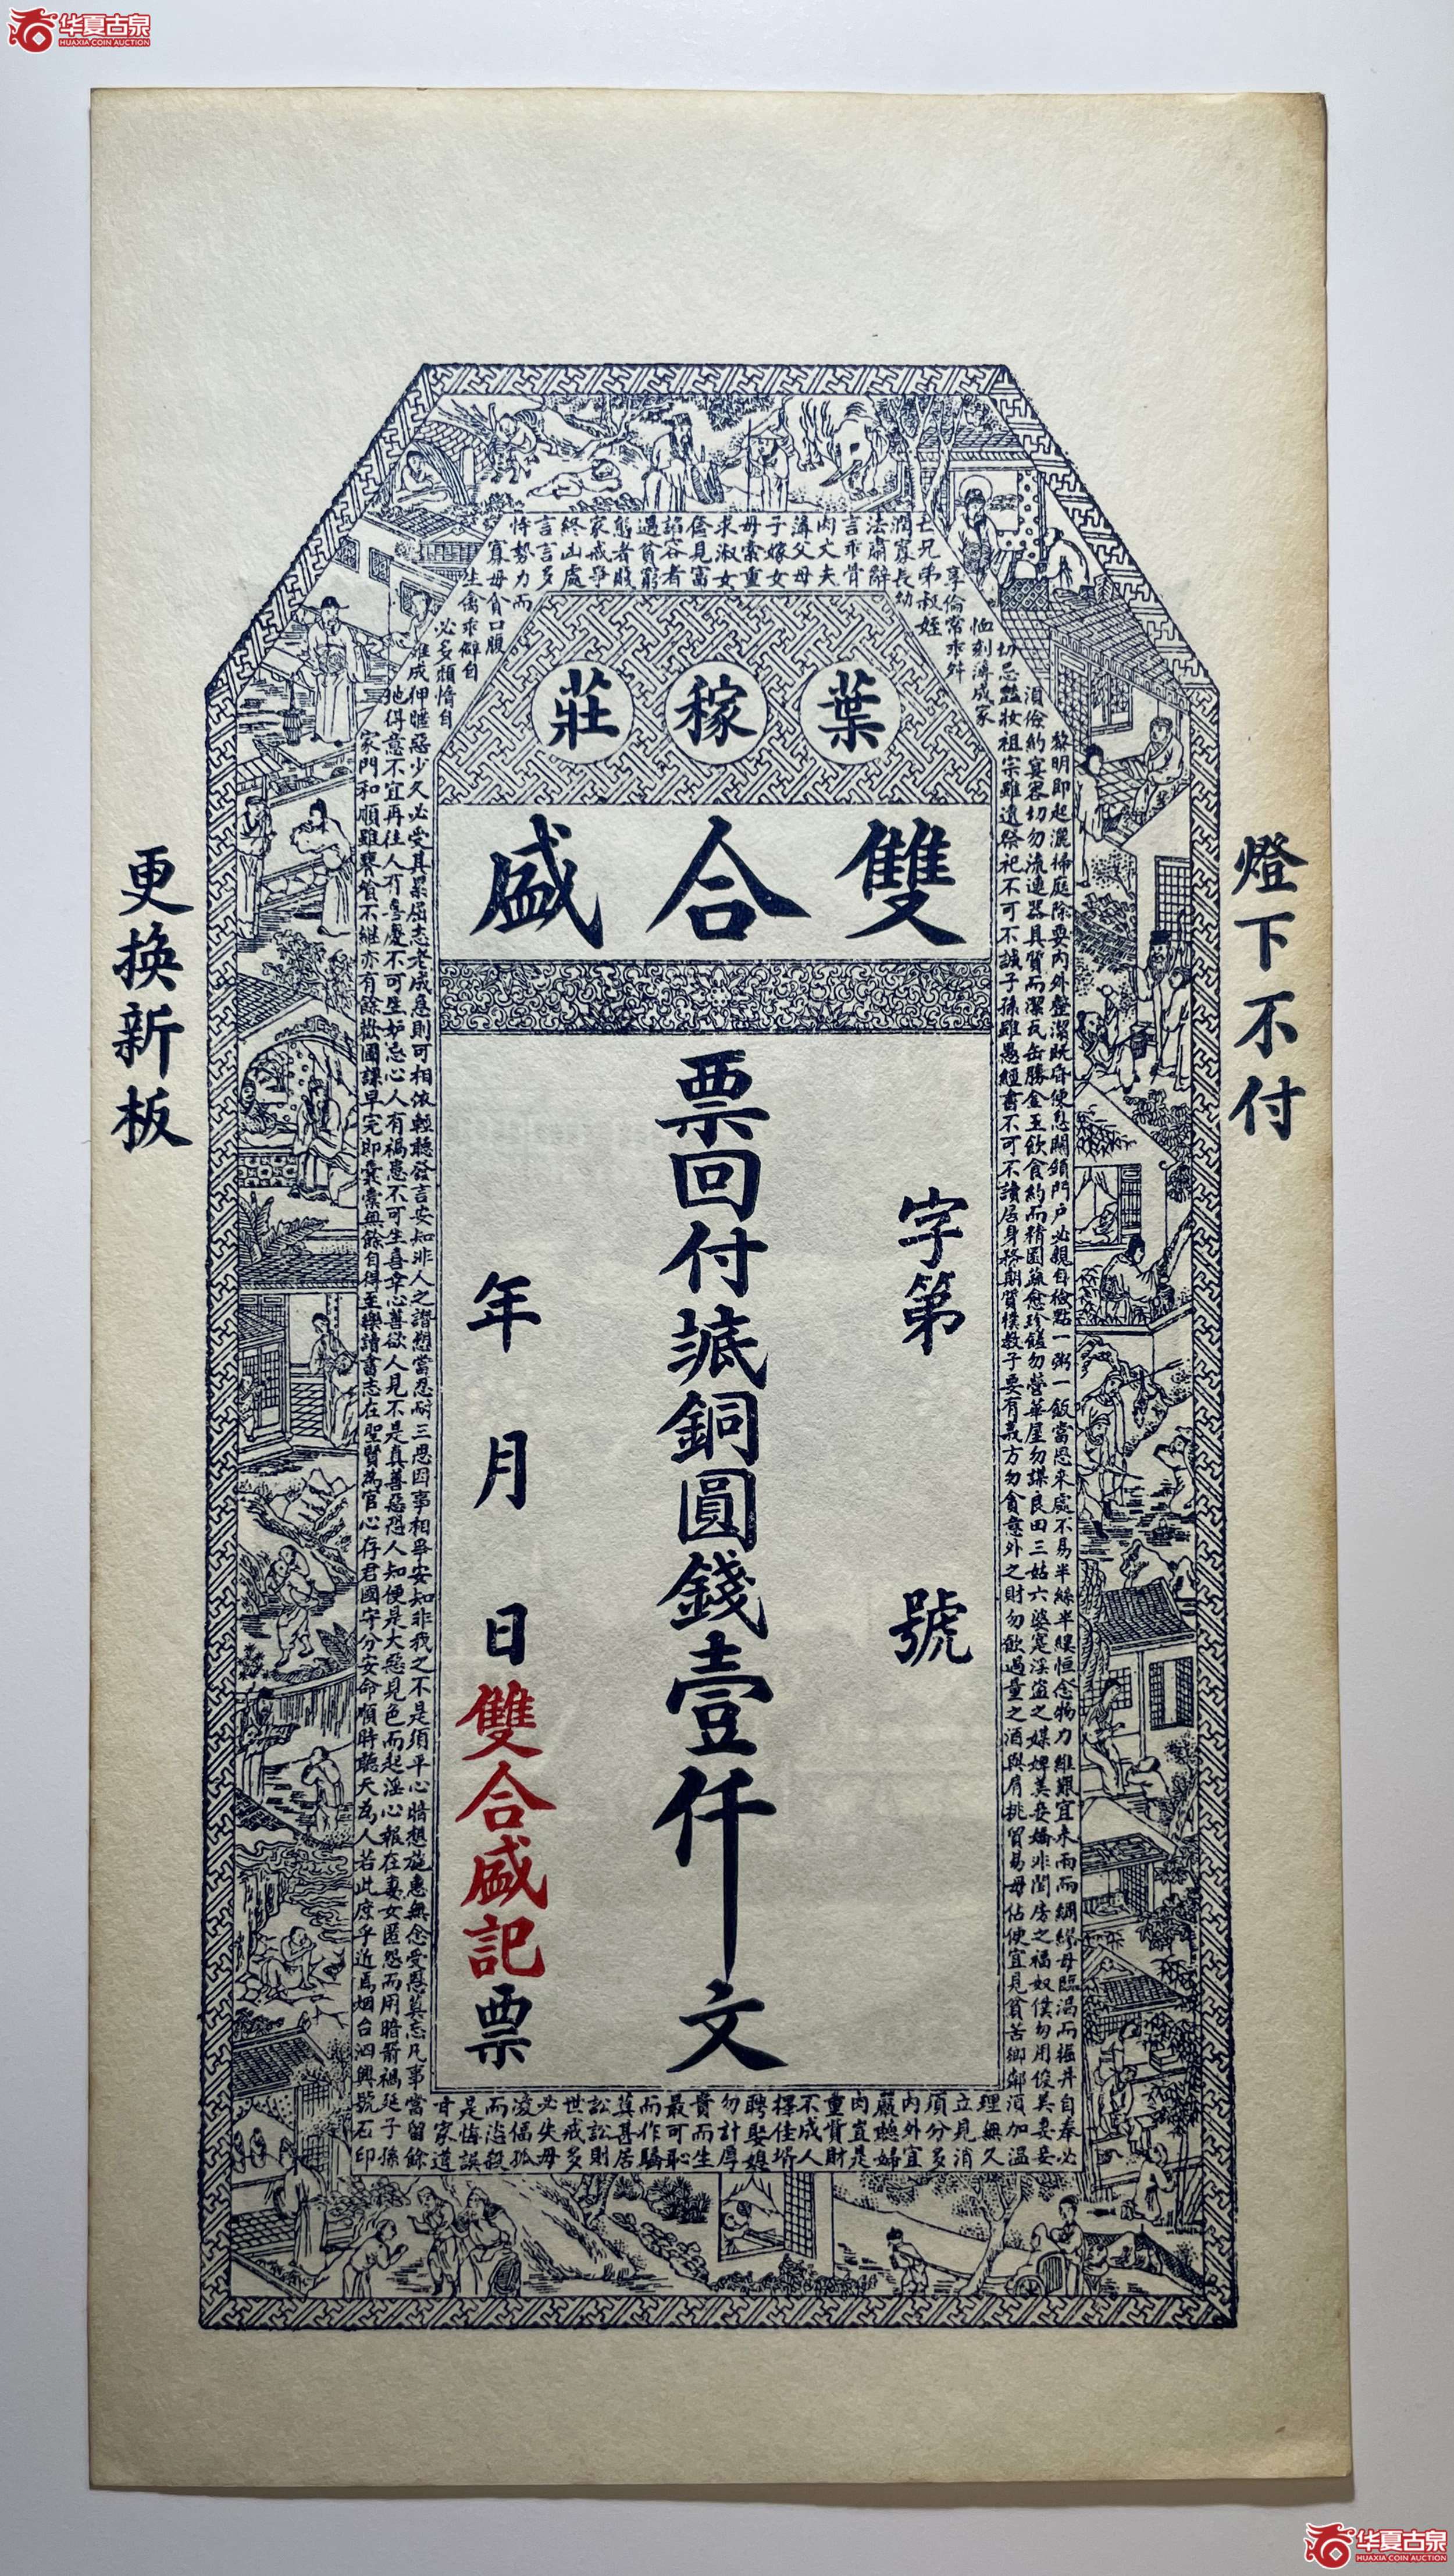 华夏古泉
HUAXIA COIN AUCTION
葉稼莊
雙合盛
燈下不付
字第 號
票回付𧨏銅圓錢壹仟文
年 月 日雙合盛記票
更換新板
黎明即起灑掃庭除要內外整潔既昏便息關鎖門户必親自檢點一粥一飯當思來處不易半絲半縷恒念物力維艱宜未雨而綢繆毋臨渴而掘井自奉必
須儉約宴客切勿流連器具質而潔瓦缶勝金玉飲食約而精園蔬愈珍饈勿營華屋勿謀良田三姑六婆寔淫盜之媒婢美妾嬌非閨房之福奴僕勿用俊美妻妾
切忌豔妝祖宗雖遠祭祀不可不誠子孫雖愚經書不可不讀居身務期質樸教子要有義方勿貪意外之財勿飲過量之酒與肩挑貿易毋佔便宜見貧苦鄉鄰須加溫
恤刻薄成家
理無久
享倫常乖舛
立見消
亡兄弟叔姪
須分多
潤寡長幼
內外宜
法肅辭
嚴聽婦
言乖骨
肉豈是
肉丈夫
重貲財
薄父母
不成人
子嫁女
擇佳壻
毋索重
聘娶媳
求淑女
勿計厚
奩見富
貴而生
諂容者
最可恥
遇貧窮
而作驕
態者賤
莫甚居
家戒爭
訟訟則
終凶處
世戒多
言言多
必失毋
恃勢力而
凌偪孤
寡毋貪口腹
而恣殺
生禽乖僻自
是悔誤
必多頹惰自
甘家道
難成狎暱惡少久必受其累屈志老成急則可相依輕聽發言安知非人之譖愬當忍耐三思因事相爭安知非我之不是須平心暗想施惠無念受恩莫忘凡事當留餘
地得意不宜再往人有喜慶不可生妒忌心人有禍患不可生喜幸心善欲人見不是真善惡恐人知便是大惡見色而起淫心報在妻女匿怨而用暗箭禍延子孫
家門和順雖饔飧不繼亦有餘歡國課早完即囊橐無餘自得至樂讀書志在聖賢為官心存君國守分安命順時聽天為人若此庶乎近焉烟台泗興號石印
华夏古泉
HUAXIA COIN AUCTION